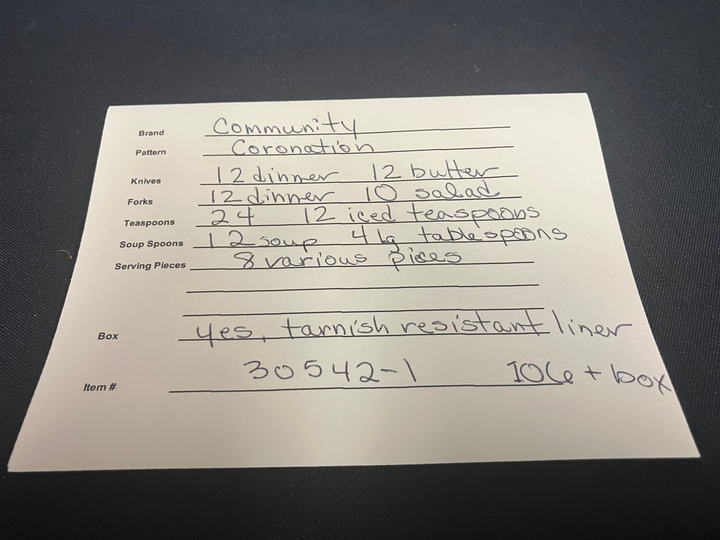 Brand Community
Pattern Coronation
Knives 12 dinner 12 butter
Forks 12 dinner 10 salad
Teaspoons 24 12 iced teaspoons
Soup Spoons 12 soup 4 lg tablespoons
Serving Pieces 8 various pices
Box yes, tarnish resistant liner
Item # 30542-1 106 + box